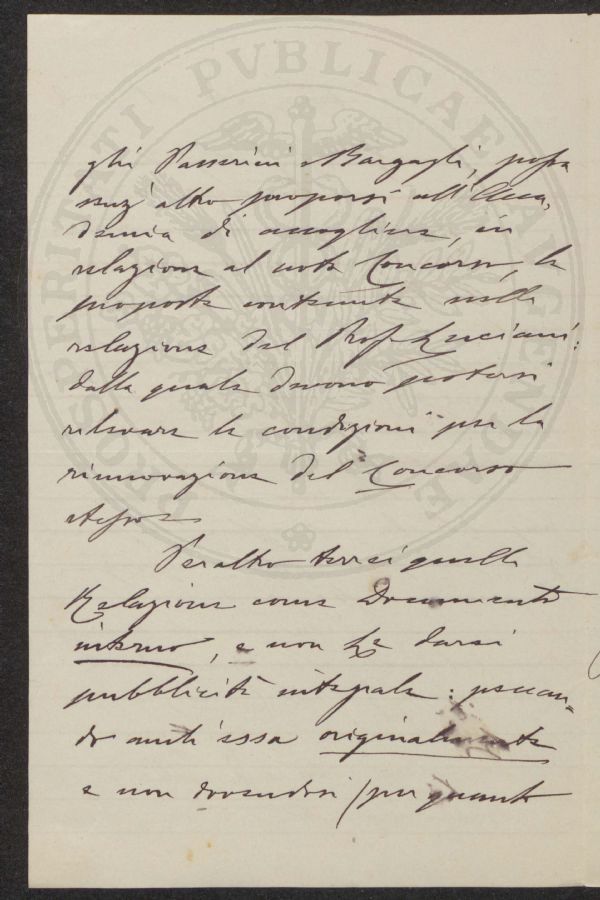 PROSPERITATI PVBLICAE AVGENDAE
ghi Passerini e Bargagli, possa
senz'altro proporsi all'Acca-
demia di accogliere, in
relazione al noto Concorso, le
proposte contenute nella
relazione del Prof. Luciani:
dalla quale devono potersi
rilevare le condizioni per la
rinnovazione del Concorso
stesso
Peraltro terrei quella
Relazione come Documento
interno, e non da darsi
pubblicità integrale: peccan=
do anch'essa originalmente
e non dovendosi (per quanto